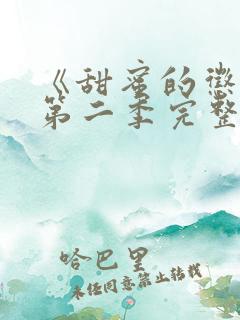 《甜蜜的惩
第二季完整
哈巴里
未经同意禁止转载